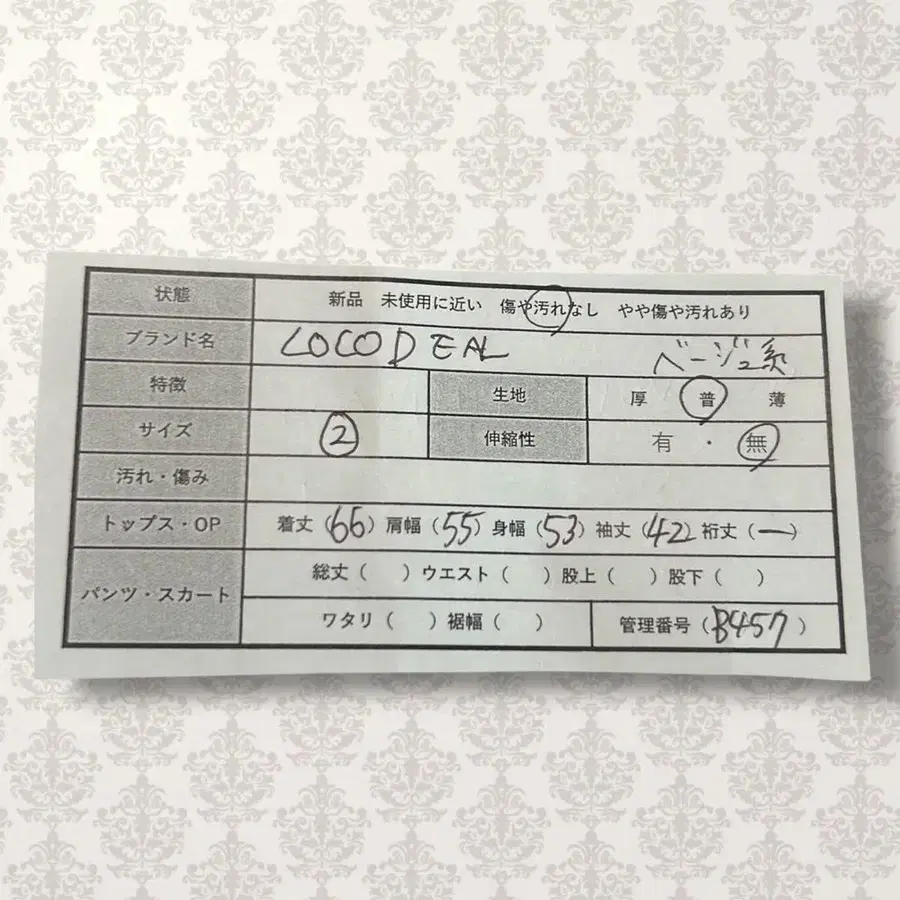 状態 新品 未使用に近い 傷や汚れなし やや傷や汚れあり
ブランド名 LOCODEAL ベージュ系
特徴 生地 厚 普 薄
サイズ 2 伸縮性 有・無
汚れ・傷み
トップス・OP 着丈(66) 肩幅(55) 身幅(53) 袖丈(42) 裄丈(ー)
パンツ・スカート 総丈( ) ウエスト( ) 股上( ) 股下( )
ワタリ( ) 裾幅( ) 管理番号(B457)